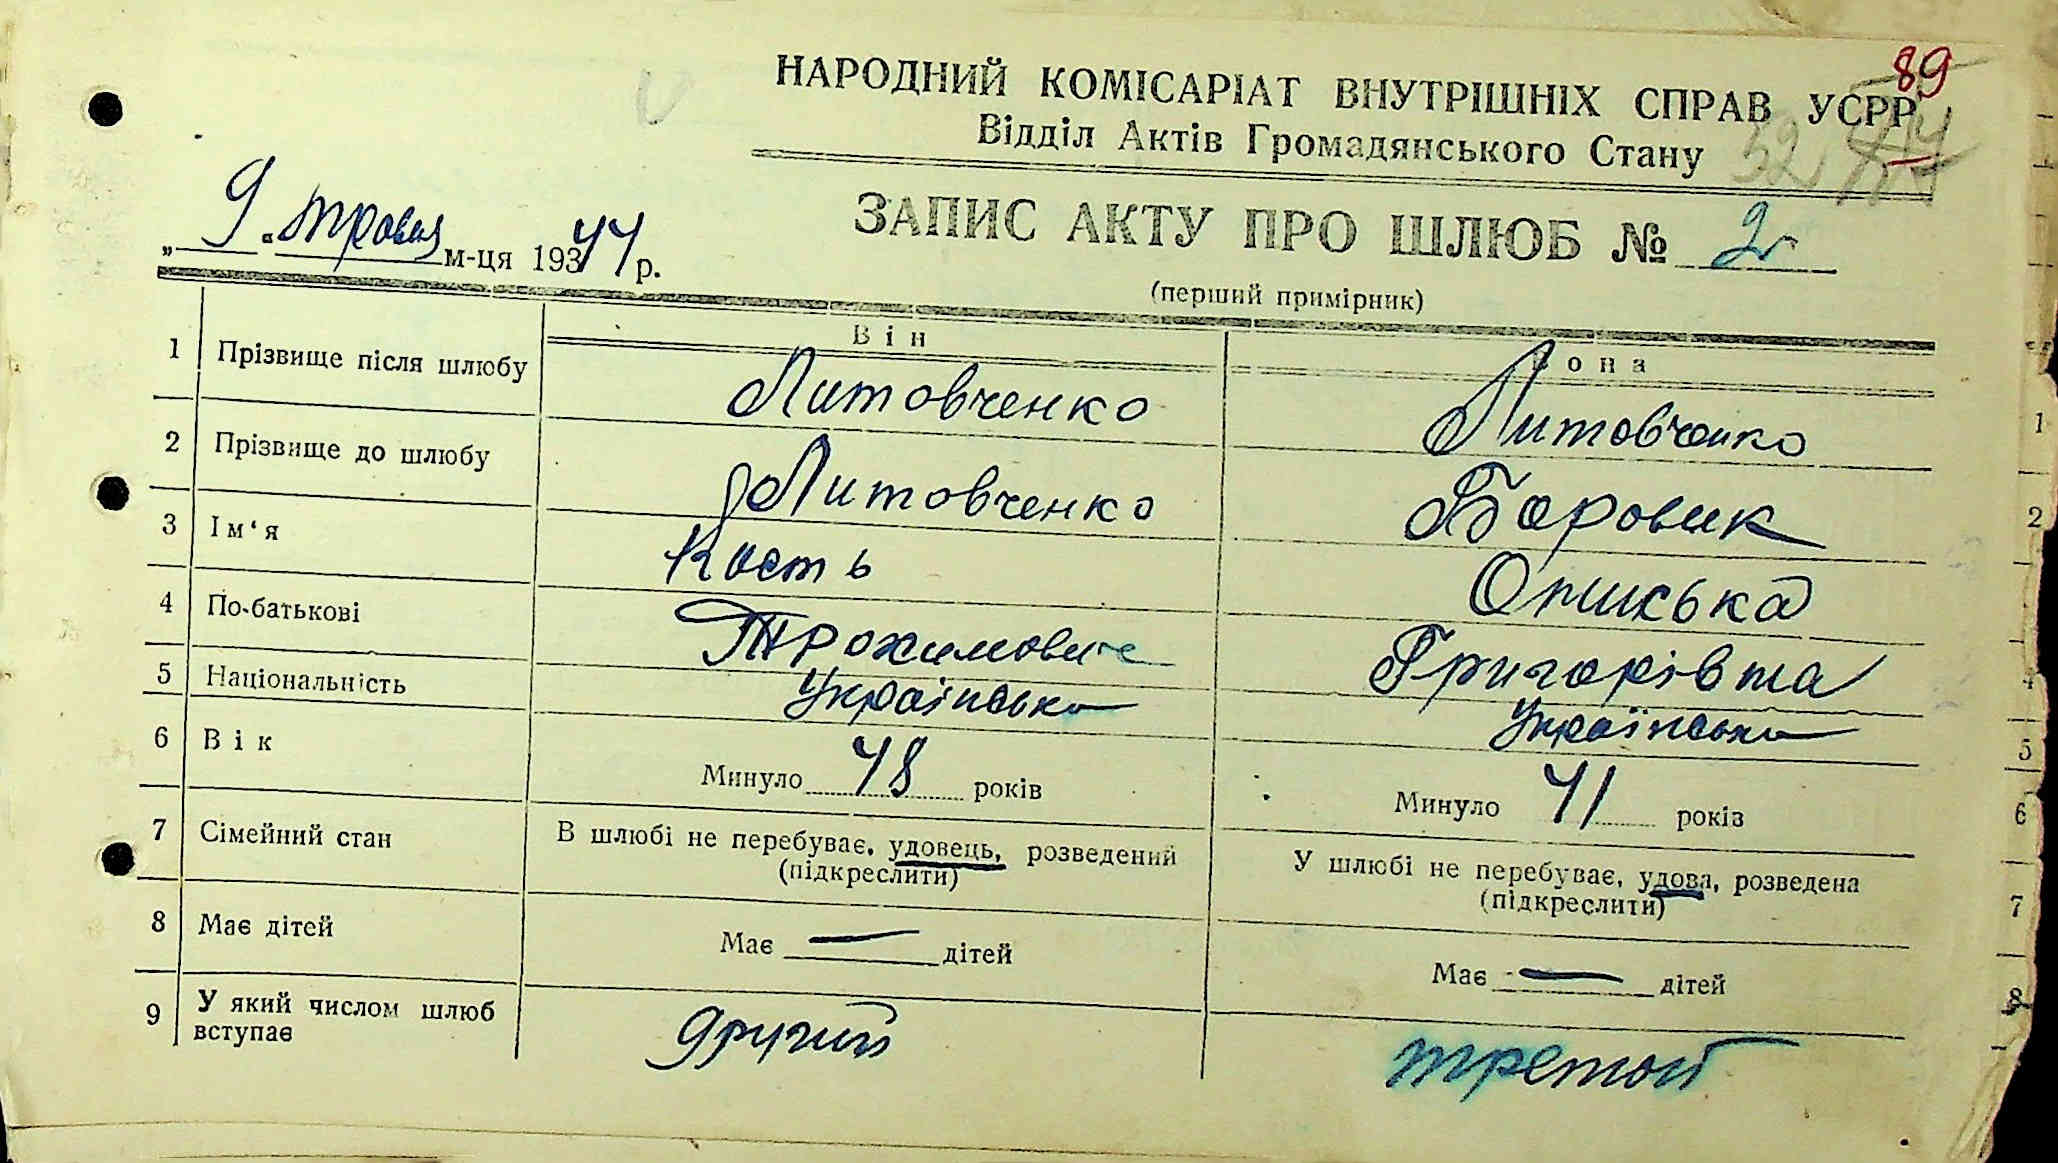 89
НАРОДНИЙ КОМІСАРІАТ ВНУТРІШНІХ СПРАВ УСРР
Відділ Актів Громадянського Стану 52
„ 9 “ травня м-ця 19344 р.
ЗАПИС АКТУ ПРО ШЛЮБ № 2
(перший примірник)
Він Вона
1 Прізвище після шлюбу Литовченко Литовченко 1
2 Прізвище до шлюбу Литовченко Боровик 2
3 Ім‘я Кость Ониська
4 По-батькові Трохимович Григорівна 4
5 Національність Українська Українська 5
6 Вік Минуло 48 років Минуло 41 років 6
7 Сімейний стан В шлюбі не перебуває, удовець, розведений У шлюбі не перебуває, удова, розведена 7
(підкреслити) (підкреслити)
8 Має дітей Має — дітей Має — дітей 8
9 У який числом шлюб вступає другий третой